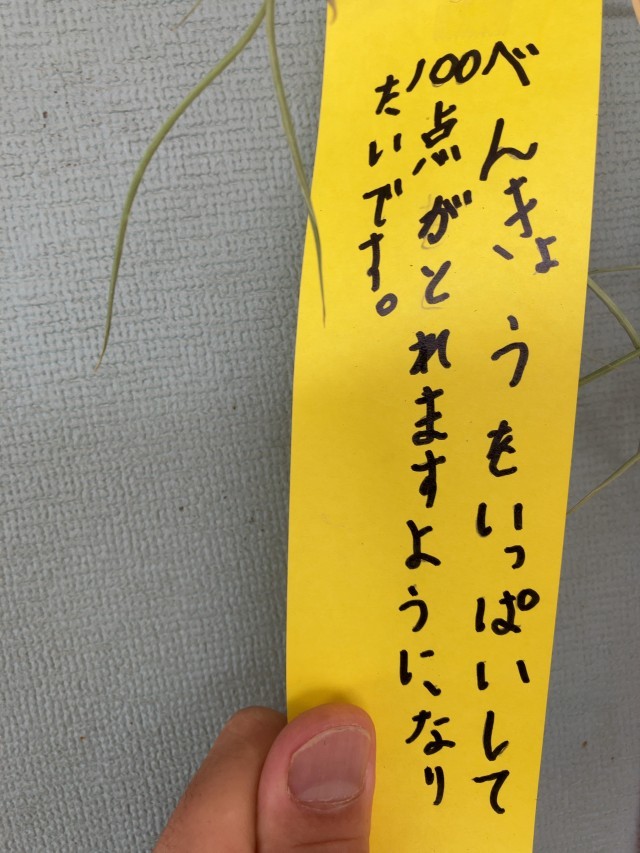 べんきょうをいっぱいして
100点がとれますように、なり
たいです。